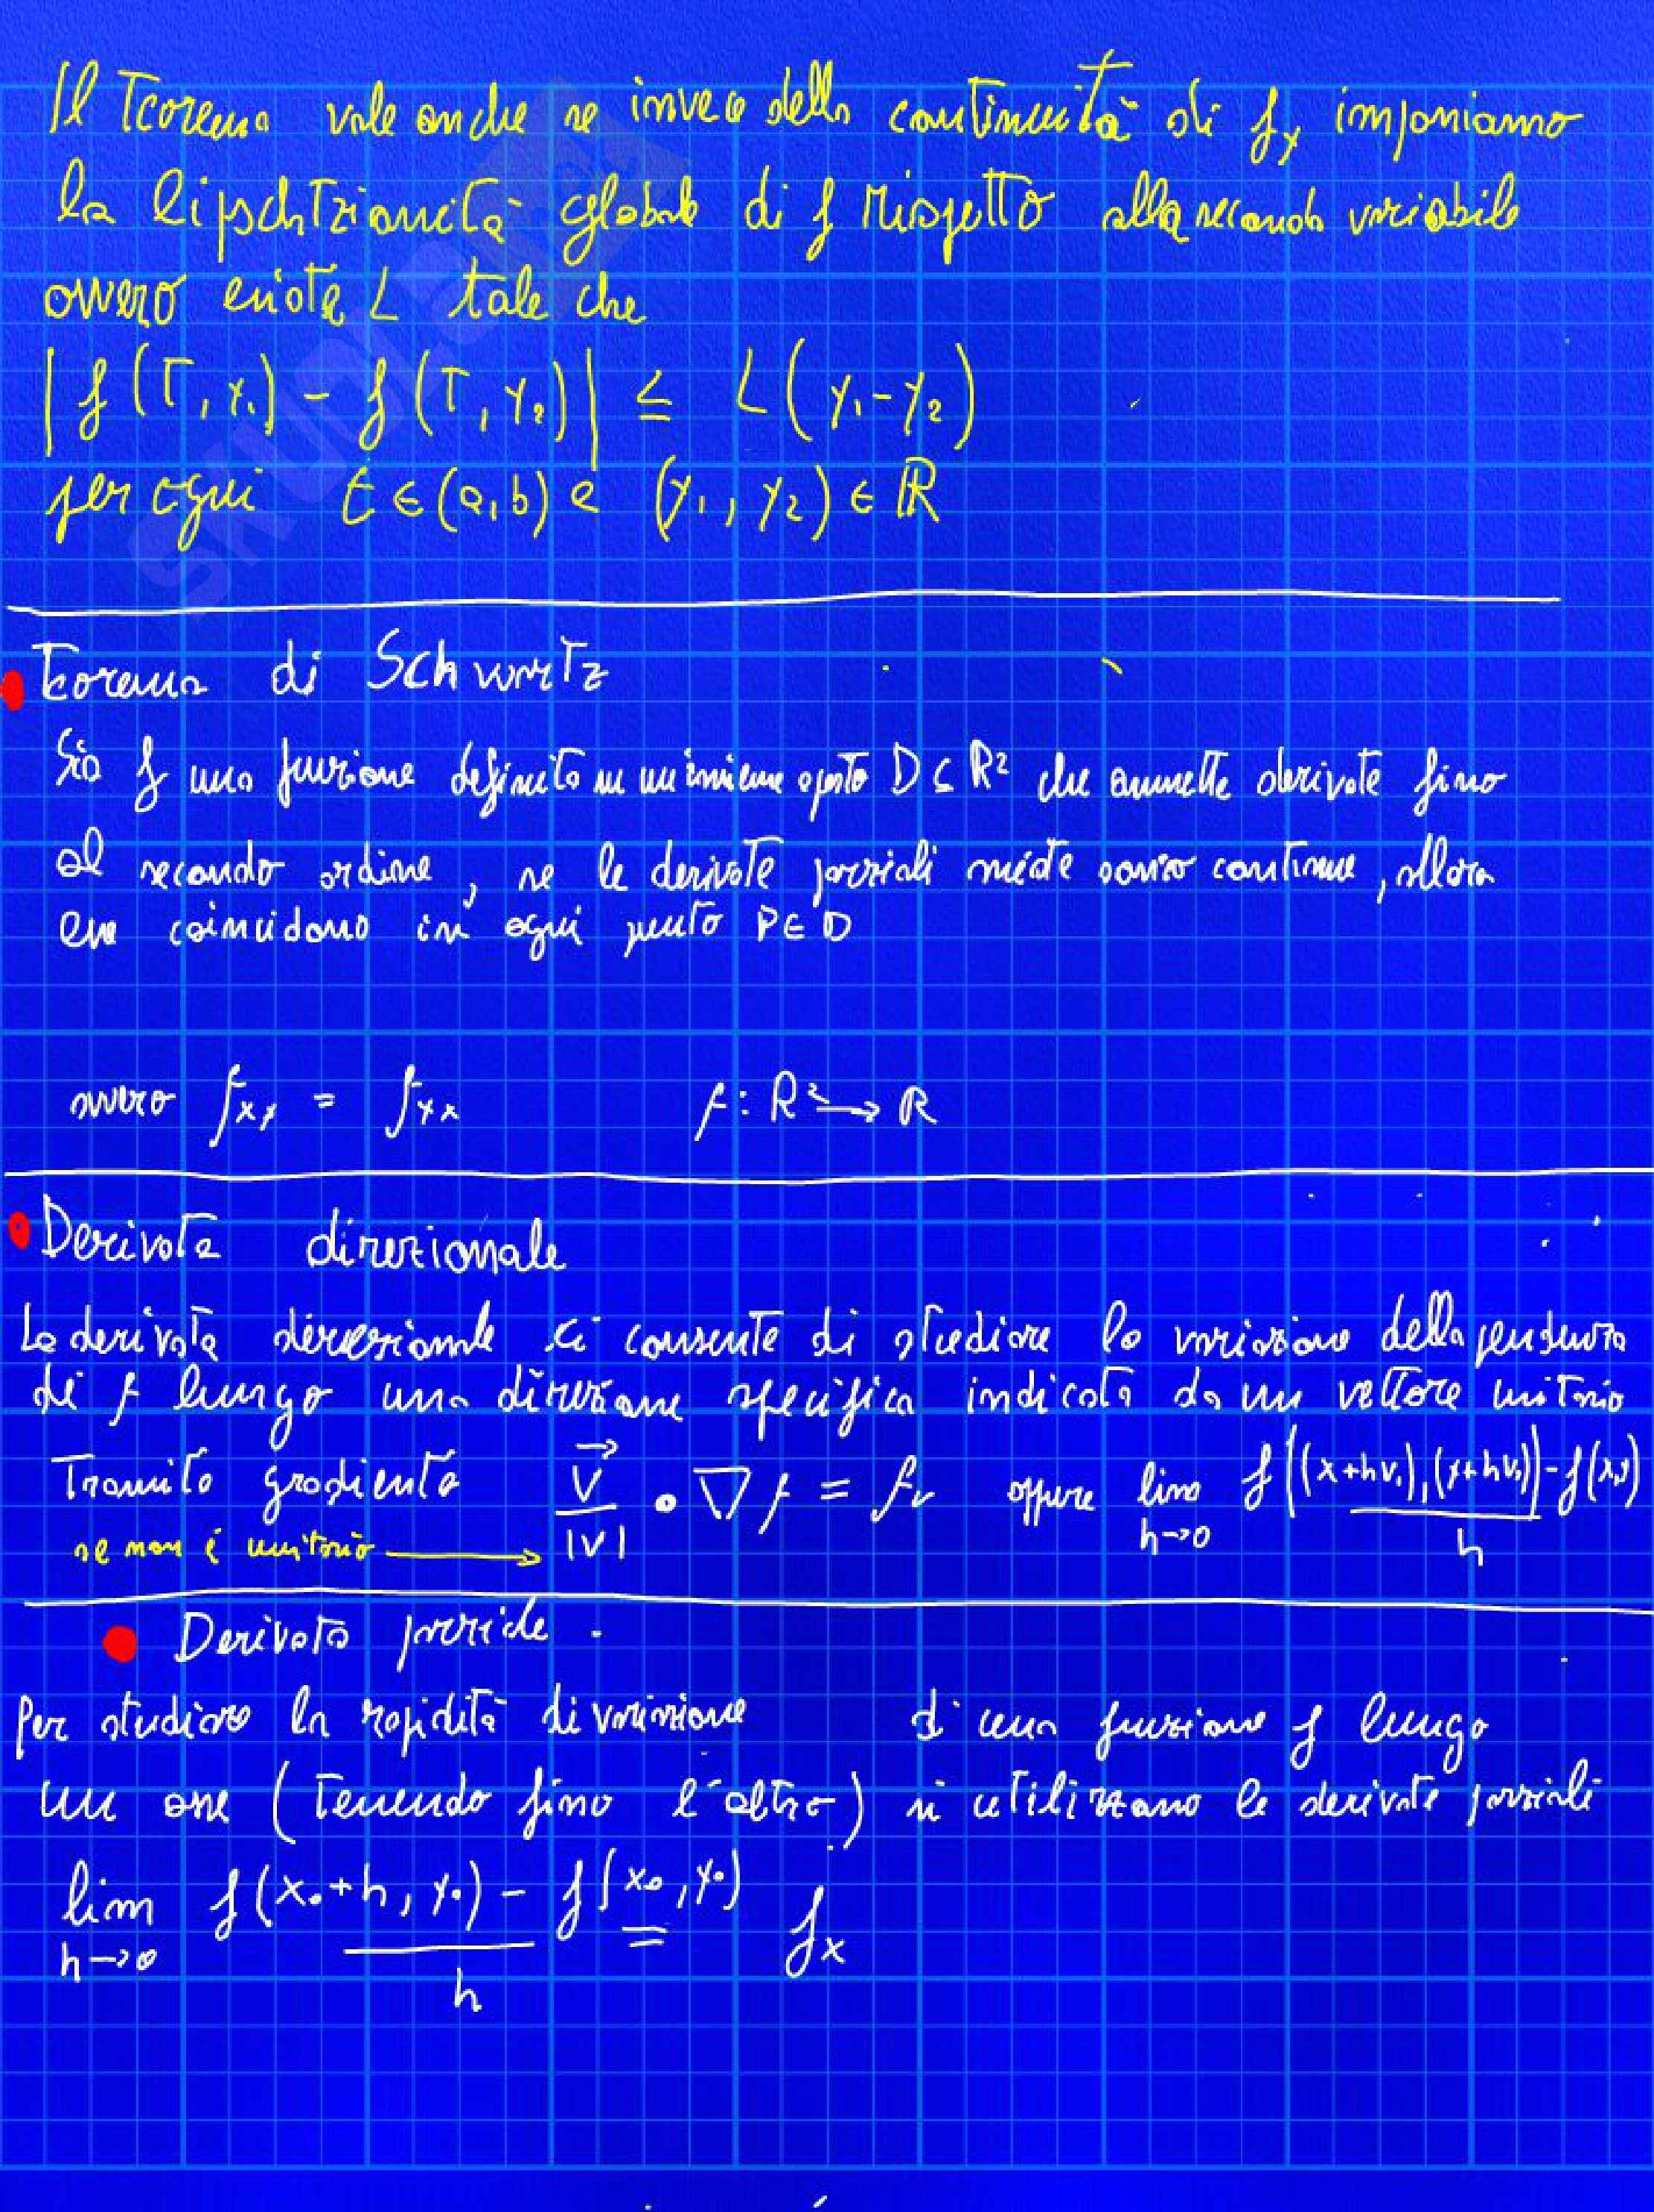 Il Teorema vale anche se invece della continuità di f_y imponiamo
la lipschtzianità globale di f rispetto alla seconda variabile
ovvero esiste L tale che
|f(T, y₁) - f(T, y₂)| ≤ L(y₁-y₂)
per ogni t ∈ (a,b) e (y₁, y₂) ∈ ℝ
Teorema di Schwartz
Sia f una funzione definita su un'insieme aperto D ⊆ R² che ammette derivate fino
al secondo ordine, se le derivate parziali miste sono continue, allora
esse coincidono in ogni punto P ∈ D
ovvero f_xy = f_yx f: R² → R
Derivata direzionale
La derivata direzionale ci consente di studiare la variazione della pendenza
di f lungo una direzione specifica indicata da un vettore unitario
Tramite gradiente v⃗/|v| • ∇f = f_v oppure lim h→0 f((x+hv₁),(y+hv₂))-f(x,y) / h
se non è unitario → 
Derivata parziale.
Per studiare la rapidità di variazione di una funzione f lungo
un asse (Tenendo fisso l'altro) si utilizzano le derivate parziali
lim h→0 f(x₀+h, y₀) - f(x₀, y₀) / h = f_x
SKUOLA.net